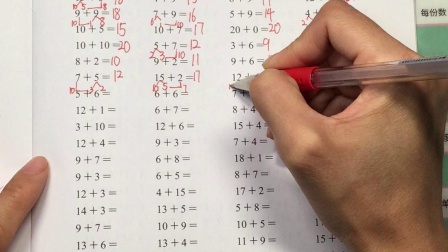 9 + 9 = 18 7 + 9 = 16 5 + 9 = 14
10 + 5 = 15 10 + 7 = 17 20 + 0 = 20
10 + 10 = 20 5 + 7 = 12 3 + 6 = 9
8 + 2 = 10 9 + 2 = 11 9 + 6 =
7 + 5 = 12 15 + 2 = 17 12 +
5 + 6 = 6 + 6 = 7 +
12 + 1 = 7 + 6 = 8 + 4
3 + 10 = 12 + 6 = 15 + 4
9 + 6 = 9 + 3 = 7 + 4 =
9 + 7 = 6 + 8 = 18 + 1 =
9 + 3 = 6 + 5 = 8 + 7 =
12 + 3 = 4 + 15 = 17 + 2 =
14 + 3 = 13 + 5 = 5 + 8 =
9 + 7 = 10 + 6 = 10 + 5 =
13 + 6 = 13 + 4 = 11 + 9 =
每份数